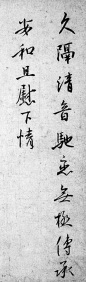 久隔清音馳戀無極傳承
安和且慰下情